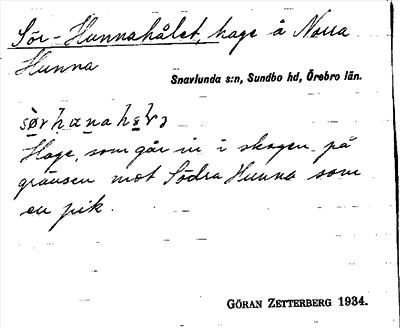 Sör-Hunnahålet, hage å Norra
Hunna
Snavlunda s:n, Sundbo hd, Örebro län.
Hage, som går in i skogen på
gränsen mot Södra Hunna som
en pik.
GÖRAN ZETTERBERG 1934.